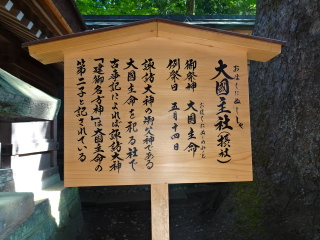 おおくにぬししゃ
大國主社(摂枝)
おおくにぬしのみこと
御祭神　大国主命
例祭日　五月十四日
諏訪大神の御父神である
大国主命を祀る社で
古事記によれば諏訪大神
「建御名方神」は大国主命の
第二子と記されている